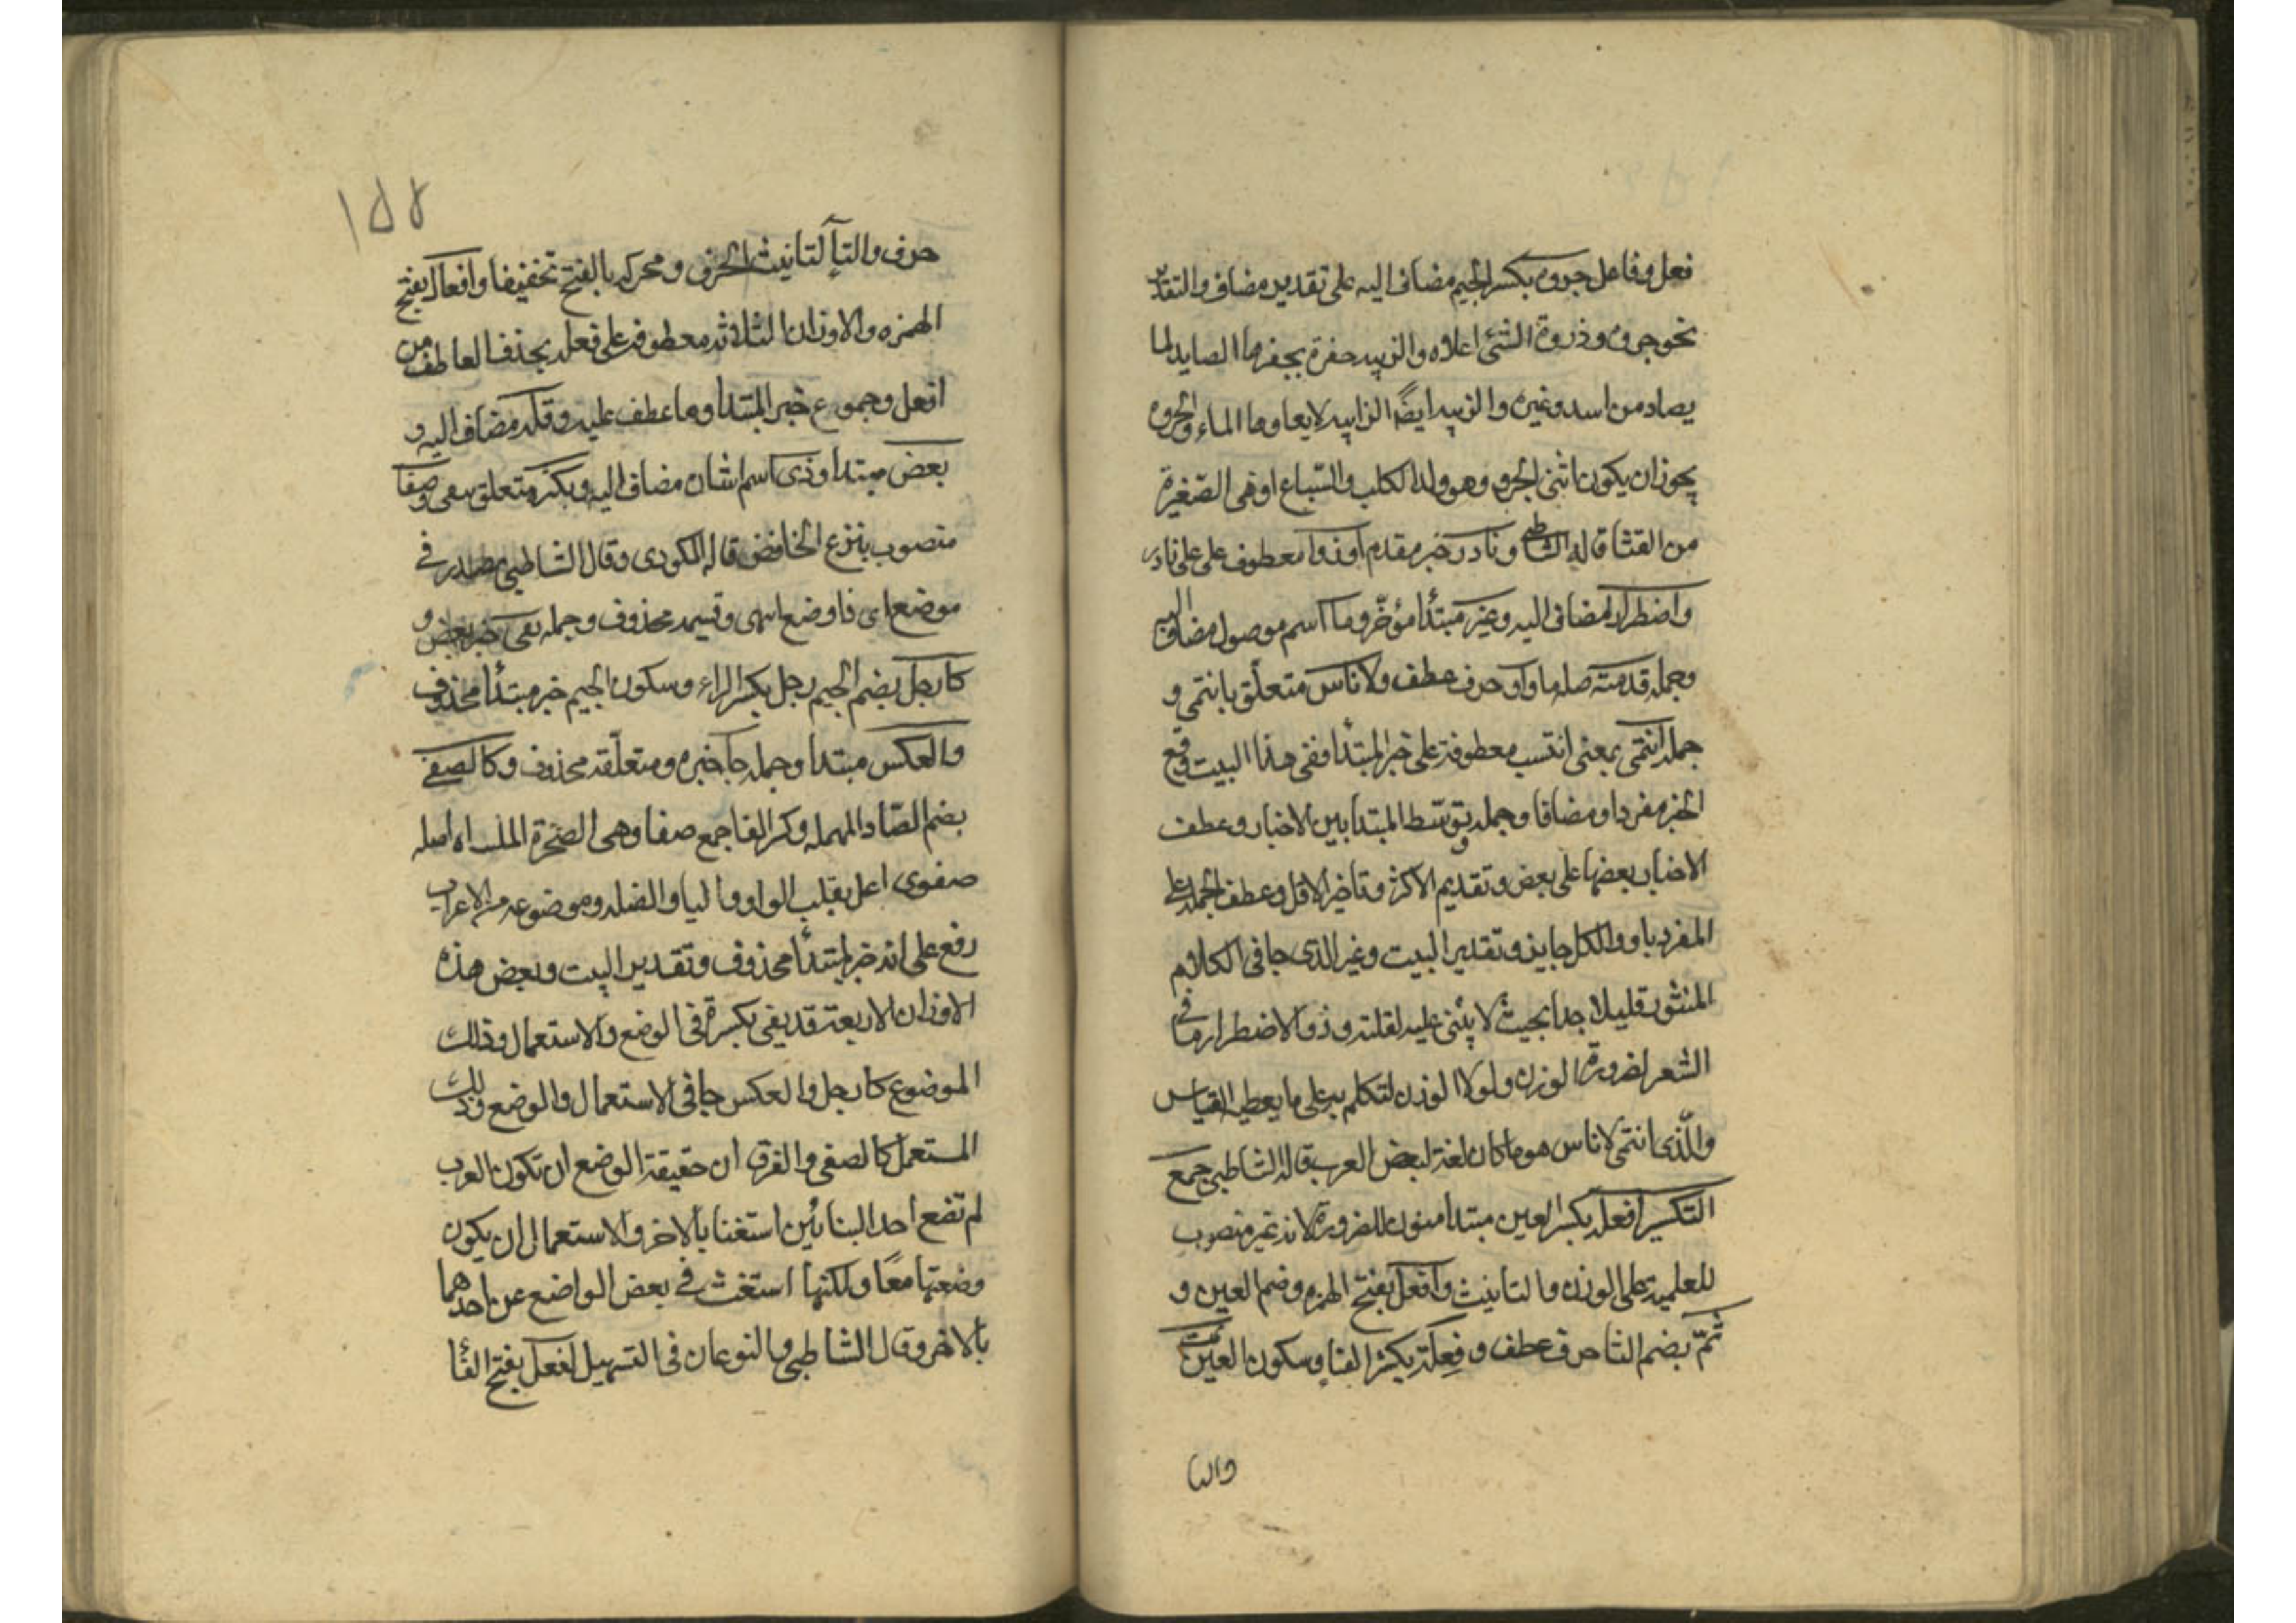 فعل وفاعل جروه بكسر الجيم مضاف اليه على تقدير مضاف والتقدير
نحو جروه وذروة الشئ اعلاه والزبية حفرة يحفرها الصايد لما
يصاد من اسد وغيره والزبية ايضًا الرابية لا يعلوها الماء والجروه
يجوز ان يكون انثى الجرو وهو ولد الكلب والسباع او هى الصّغيرة
من القثا قاله الشاطبى ونادر خبر مقدم او ذو معطوف على على نادر
واضطرار مضاف اليه وغير مبتدأ مؤخّر وما اسم موصول مضاف اليه
وجملة قدمته صلة ما واو حرف عطف ولاناس متعلّق بانتمى و
جملة انتمى بمعنى انتسب معطوفة على خبر المبتدأ ففى هذا البيت وقع
الخبر مفردا ومضافا وجملة وتوسّط المبتدا بين الاخبار وعطف
الاخبار بعضها على بعض وتقديم الاكثر وتاخير الاقل وعطف الجملة على
المفرد باو والكل جايز وتقدير البيت وغير الذى جا فى الكلام
المنثور قليلا جدا بحيث لا يبنى عليه لقلته وذو الاضطرار ما فى
الشعر لضرورة الوزن ولولا الوزن لتكلم به على ما يعطيه القياس
والّذى انتمى لاناس هو ما كان لغة لبعض العرب قاله الشاطبى جمع
التكسير افعلة بكسر العين مبتدا منون للضرورة لانه غير منصوب
للعلمية على الوزن والتانيث وافعل بفتح الهمزه وضم العين و
ثمّ بضم الثا حرف عطف وفِعلة بكسر الفا وسكون العين ثمت
والتا
١٥٨
حرف والتآ لتانيث الحرف ومحركه بالفتح تخفيفا وافعال بفتح
الهمزه والاوزان الثلاثة معطوفة على فعله بحذف العاطف من
افعل وجموع خبر المبتدا وما عطف عليه وقلة مضاف اليه و
بعض مبتدا وذى اسم اشارة مضاف اليه وبكثرة متعلق بيفى وضعا
منصوب بنزع الخافض قاله المكودى وقال الشاطبى مصدر فى
موضع اى فا وضع انتهى وقسيمه محذوف وجملة يفى خبر بعض و
كارجل بضم الجيم رجل بكسر الراء وسكون الجيم خبر مبتدأ محذوف
والعكس مبتدا وجملة جا خبره ومتعلّقه محذوف وكالصفى
بضم الصّاد المهملة وكسر الفا جمع صفا وهى الصخرة الملساء اصله
صفوى اعل بقلب الواو يا وموضوعه من الاعراب
رفع على انه خبر لمبتدأ محذوف وتقدير البيت وبعض هذه
الاوزان الاربعة قد يفى بكسرة فى الوضع والاستعمال وذلك
الموضوع كارجل والعكس جا فى الاستعمال والوضع وذلك
المستعمل كالصفى والفرق ان حقيقة الوضع ان تكون العرب
لم تضع احد البنائين استغنا بالاخر والاستعمال ان يكون
وضعتهما معًا ولكنها استغنت فى بعض المواضع عن احدهما
بالاخر وقال الشاطبى والنوعان فى التسهيل لفعل بفتح الفأ